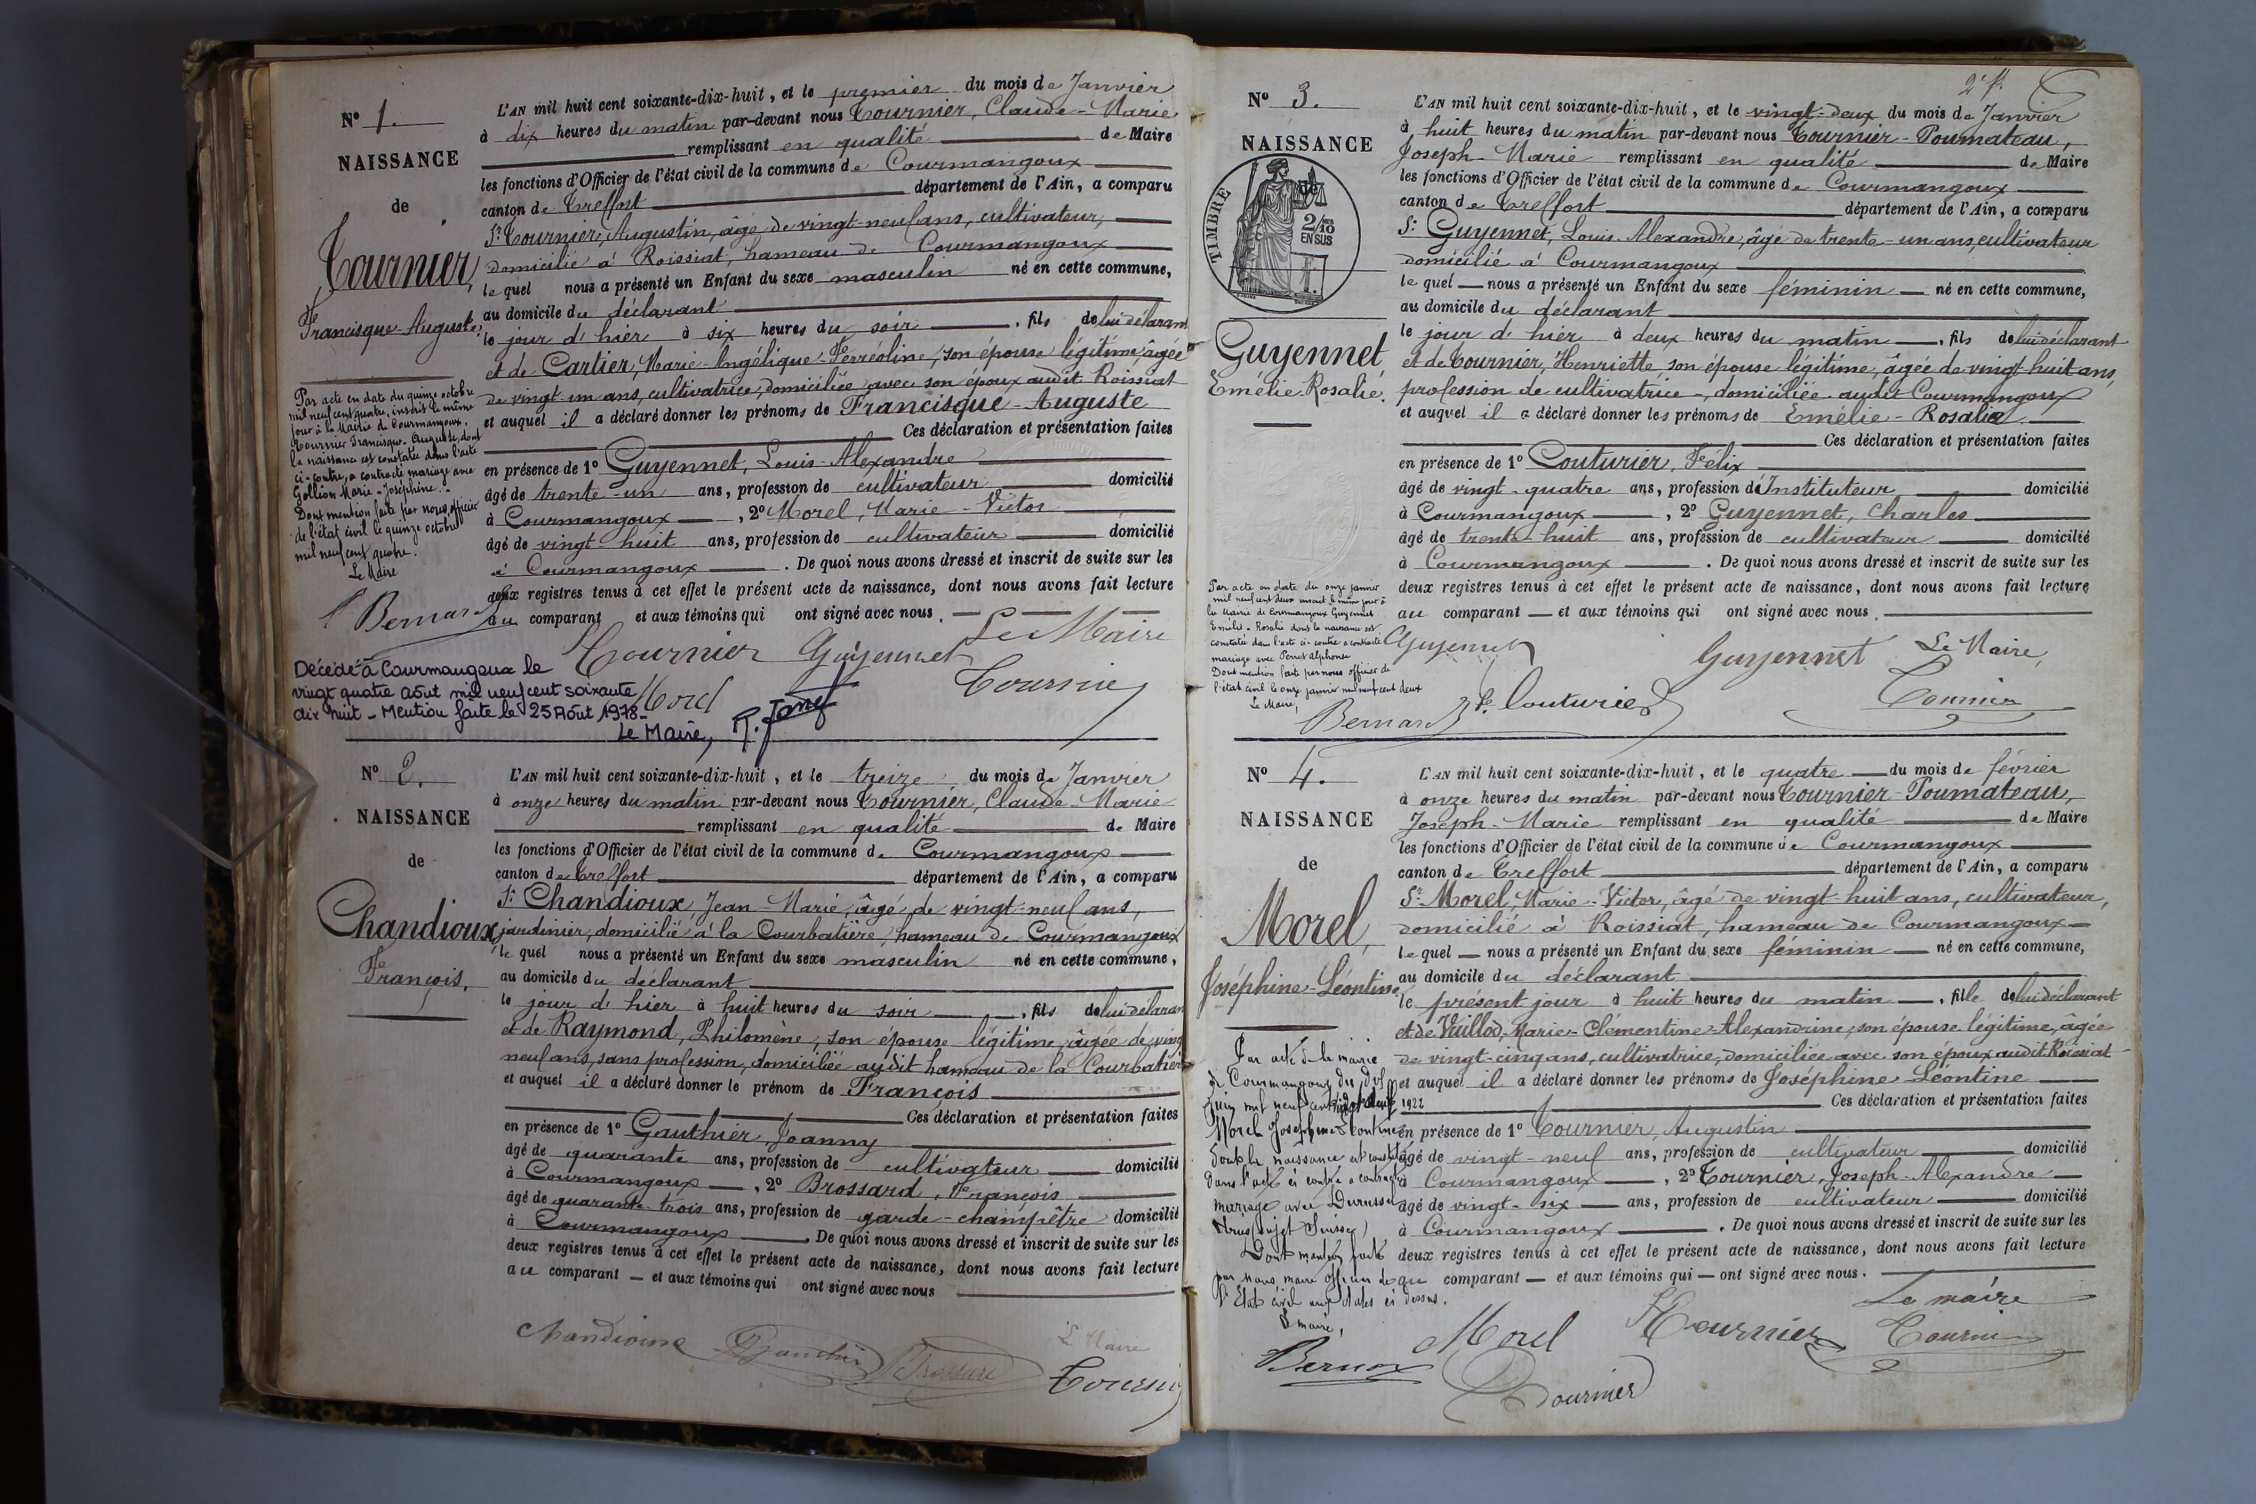 N° 1.
NAISSANCE
de
Tournier,
Francisque-Auguste.
Par acte en date du quinze octobre
mil neuf cent quatre, inscrit le même
jour à la Mairie de Courmangoux,
Tournier Francisque-Auguste, dont
la naissance est constatée dans l'acte
ci-contre, a contracté mariage avec
Gollion Marie-Joséphine.
Dont mention faite par nous, officier
de l'état civil le quinze octobre
mil neuf cent quatre.
Le Maire
Bernard
Décédé à Courmangoux le
vingt quatre août mil neuf cent soixante
dix huit - Mention faite le 25 Août 1978 -
Le Maire,
L'AN mil huit cent soixante-dix-huit, et le premier du mois de Janvier
à dix heures du matin par-devant nous Tournier, Claude-Marie
remplissant en qualité de Maire
les fonctions d'Officier de l'état civil de la commune de Courmangoux
canton de Treffort département de l'Ain, a comparu
Sr. Tournier, Augustin, âgé de vingt-neuf ans, cultivateur,
domicilié à Roissiat, hameau de Courmangoux
lequel nous a présenté un Enfant du sexe masculin né en cette commune,
au domicile du déclarant
le jour d'hier à six heures du soir, fils de lui déclarant
et de Cartier, Marie-Angélique-Ferréoline, son épouse légitime, âgée
de vingt un ans, cultivatrice, domiciliée avec son époux audit Roissiat
et auquel il a déclaré donner les prénoms de Francisque-Auguste
Ces déclaration et présentation faites
en présence de 1° Guyennet, Louis-Alexandre
âgé de trente-un ans, profession de cultivateur domicilié
à Courmangoux, 2° Morel, Marie-Victor
âgé de vingt-huit ans, profession de cultivateur domicilié
à Courmangoux. De quoi nous avons dressé et inscrit de suite sur les
deux registres tenus à cet effet le présent acte de naissance, dont nous avons fait lecture
au comparant et aux témoins qui ont signé avec nous.
Le Maire
Tournier Guyennet
Morel Tournier
N° 2.
NAISSANCE
de
Chandioux,
François.
L'AN mil huit cent soixante-dix-huit, et le treize du mois de Janvier
à onze heures du matin par-devant nous Tournier, Claude-Marie
remplissant en qualité de Maire
les fonctions d'Officier de l'état civil de la commune de Courmangoux
canton de Treffort département de l'Ain, a comparu
Sr. Chandioux, Jean-Marie, âgé de vingt-neuf ans,
jardinier, domicilié à la Courbatière, hameau de Courmangoux
lequel nous a présenté un Enfant du sexe masculin né en cette commune,
au domicile du déclarant
le jour d'hier à huit heures du soir, fils de lui déclarant
et de Raymond, Philomène, son épouse légitime, âgée de vingt
neuf ans, sans profession, domiciliée audit hameau de la Courbatière
et auquel il a déclaré donner le prénom de François
Ces déclaration et présentation faites
en présence de 1° Gauthier, Joanny
âgé de quarante ans, profession de cultivateur domicilié
à Courmangoux, 2° Brossard, François
âgé de quarante-trois ans, profession de garde-champêtre domicilié
à Courmangoux. De quoi nous avons dressé et inscrit de suite sur les
deux registres tenus à cet effet le présent acte de naissance, dont nous avons fait lecture
au comparant et aux témoins qui ont signé avec nous
Le Maire
Chandioux Gauthier Brossard Tournier
N° 3.
NAISSANCE
de
TIMBRE
2/10 EN SUS
Guyennet,
Emélie-Rosalie.
Par acte en date du onze janvier
mil neuf cent deux inscrit le même jour à
la Mairie de Courmangoux Guyennet
Emélie-Rosalie dont la naissance est
constatée dans l'acte ci-contre a contracté
mariage avec Perret Alphonse
Dont mention faite par nous officier de
l'état civil le onze janvier mil neuf cent deux
Le Maire,
Bernard
2e f.
L'AN mil huit cent soixante-dix-huit, et le vingt-deux du mois de Janvier
à huit heures du matin par-devant nous Tournier-Poumateau,
Joseph-Marie remplissant en qualité de Maire
les fonctions d'Officier de l'état civil de la commune de Courmangoux
canton de Treffort département de l'Ain, a comparu
Sr. Guyennet, Louis-Alexandre, âgé de trente-un ans, cultivateur
domicilié à Courmangoux
lequel nous a présenté un Enfant du sexe féminin né en cette commune,
au domicile du déclarant
le jour d'hier à deux heures du matin, fils de lui déclarant
et de Tournier, Henriette, son épouse légitime, âgée de vingt-huit ans,
profession de cultivatrice, domiciliée audit Courmangoux
et auquel il a déclaré donner les prénoms de Emélie-Rosalie
Ces déclaration et présentation faites
en présence de 1° Couturier, Félix
âgé de vingt-quatre ans, profession d'Instituteur domicilié
à Courmangoux, 2° Guyennet, Charles
âgé de trente-huit ans, profession de cultivateur domicilié
à Courmangoux. De quoi nous avons dressé et inscrit de suite sur les
deux registres tenus à cet effet le présent acte de naissance, dont nous avons fait lecture
au comparant et aux témoins qui ont signé avec nous.
Guyennet Guyennet Le Maire,
Couturier Tournier
N° 4.
NAISSANCE
de
Morel,
Joséphine-Léontine
Par acte de la mairie
de Courmangoux du dix
juin mil neuf cent vingt deux 1922
Morel Joséphine Léontine
dont la naissance est constatée
dans l'acte ci contre a contracté
mariage avec
sujet Suisse)
Dont mention faite
par nous, maire officier de
l'Etat civil aux dates ci dessus.
Le maire,
L'AN mil huit cent soixante-dix-huit, et le quatre du mois de février
à onze heures du matin par-devant nous Tournier-Poumateau,
Joseph-Marie remplissant en qualité de Maire
les fonctions d'Officier de l'état civil de la commune de Courmangoux
canton de Treffort département de l'Ain, a comparu
Sr. Morel, Marie-Victor, âgé de vingt-huit ans, cultivateur,
domicilié à Roissiat, hameau de Courmangoux
lequel nous a présenté un Enfant du sexe féminin né en cette commune,
au domicile du déclarant
le présent jour à huit heures du matin, fille de lui déclarant
et de Vuillod, Marie-Clémentine-Alexandrine, son épouse légitime, âgée
de vingt-cinq ans, cultivatrice, domiciliée avec son époux audit Roissiat
et auquel il a déclaré donner les prénoms de Joséphine-Léontine
Ces déclaration et présentation faites
en présence de 1° Tournier, Augustin
âgé de vingt-neuf ans, profession de cultivateur domicilié
à Courmangoux, 2° Tournier, Joseph-Alexandre
âgé de vingt-six ans, profession de cultivateur domicilié
à Courmangoux. De quoi nous avons dressé et inscrit de suite sur les
deux registres tenus à cet effet le présent acte de naissance, dont nous avons fait lecture
au comparant et aux témoins qui ont signé avec nous.
Le maire
Morel Tournier Tournier
Tournier